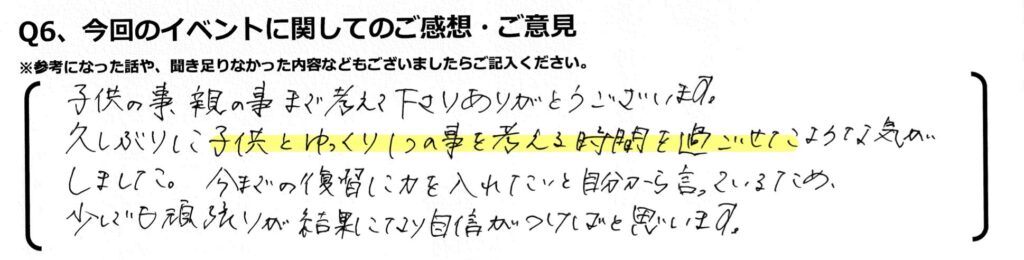 Q6、今回のイベントに関してのご感想・ご意見
※参考になった話や、聞き足りなかった内容などもございましたらご記入ください。
子供の事、親の事まで考えて下さりありがとうございます。
久しぶりに子供とゆっくり1つの事を考える時間を過ごせたような気が
しました。今までの復習に力を入れたいと自分から言っているため、
少しでも頑張りが結果になり自信がつけばと思います。